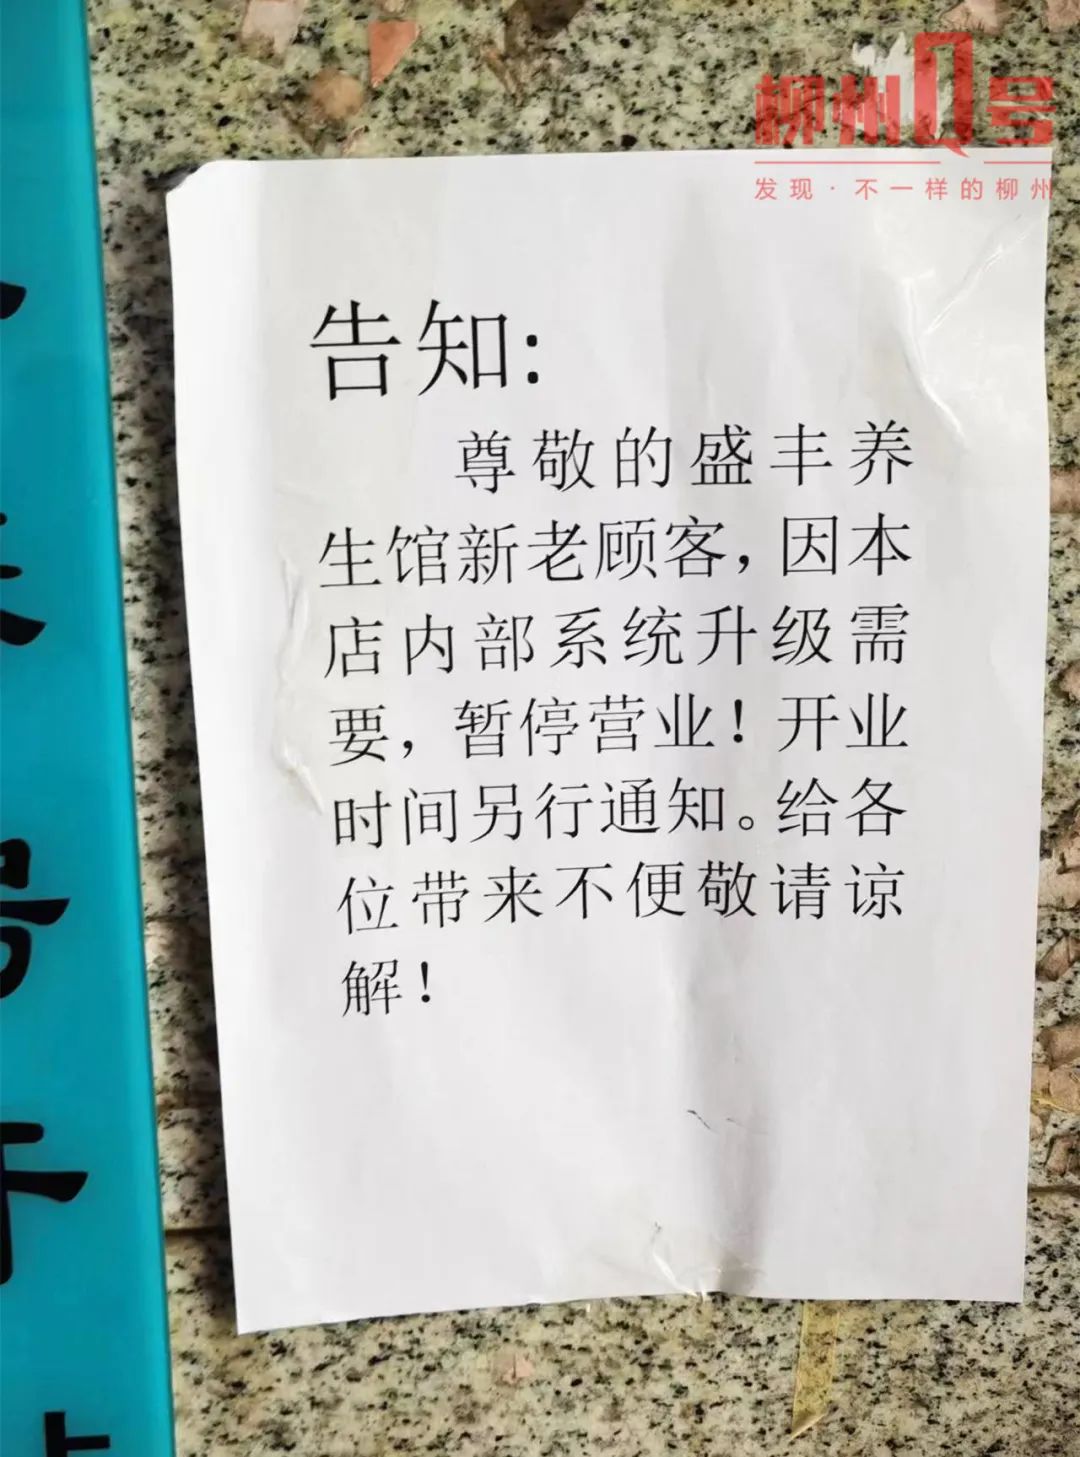 柳州Q号
发现·不一样的柳州
告知:
尊敬的盛丰养
生馆新老顾客，因本
店内部系统升级需
要，暂停营业！开业
时间另行通知。给各
位带来不便敬请谅
解！